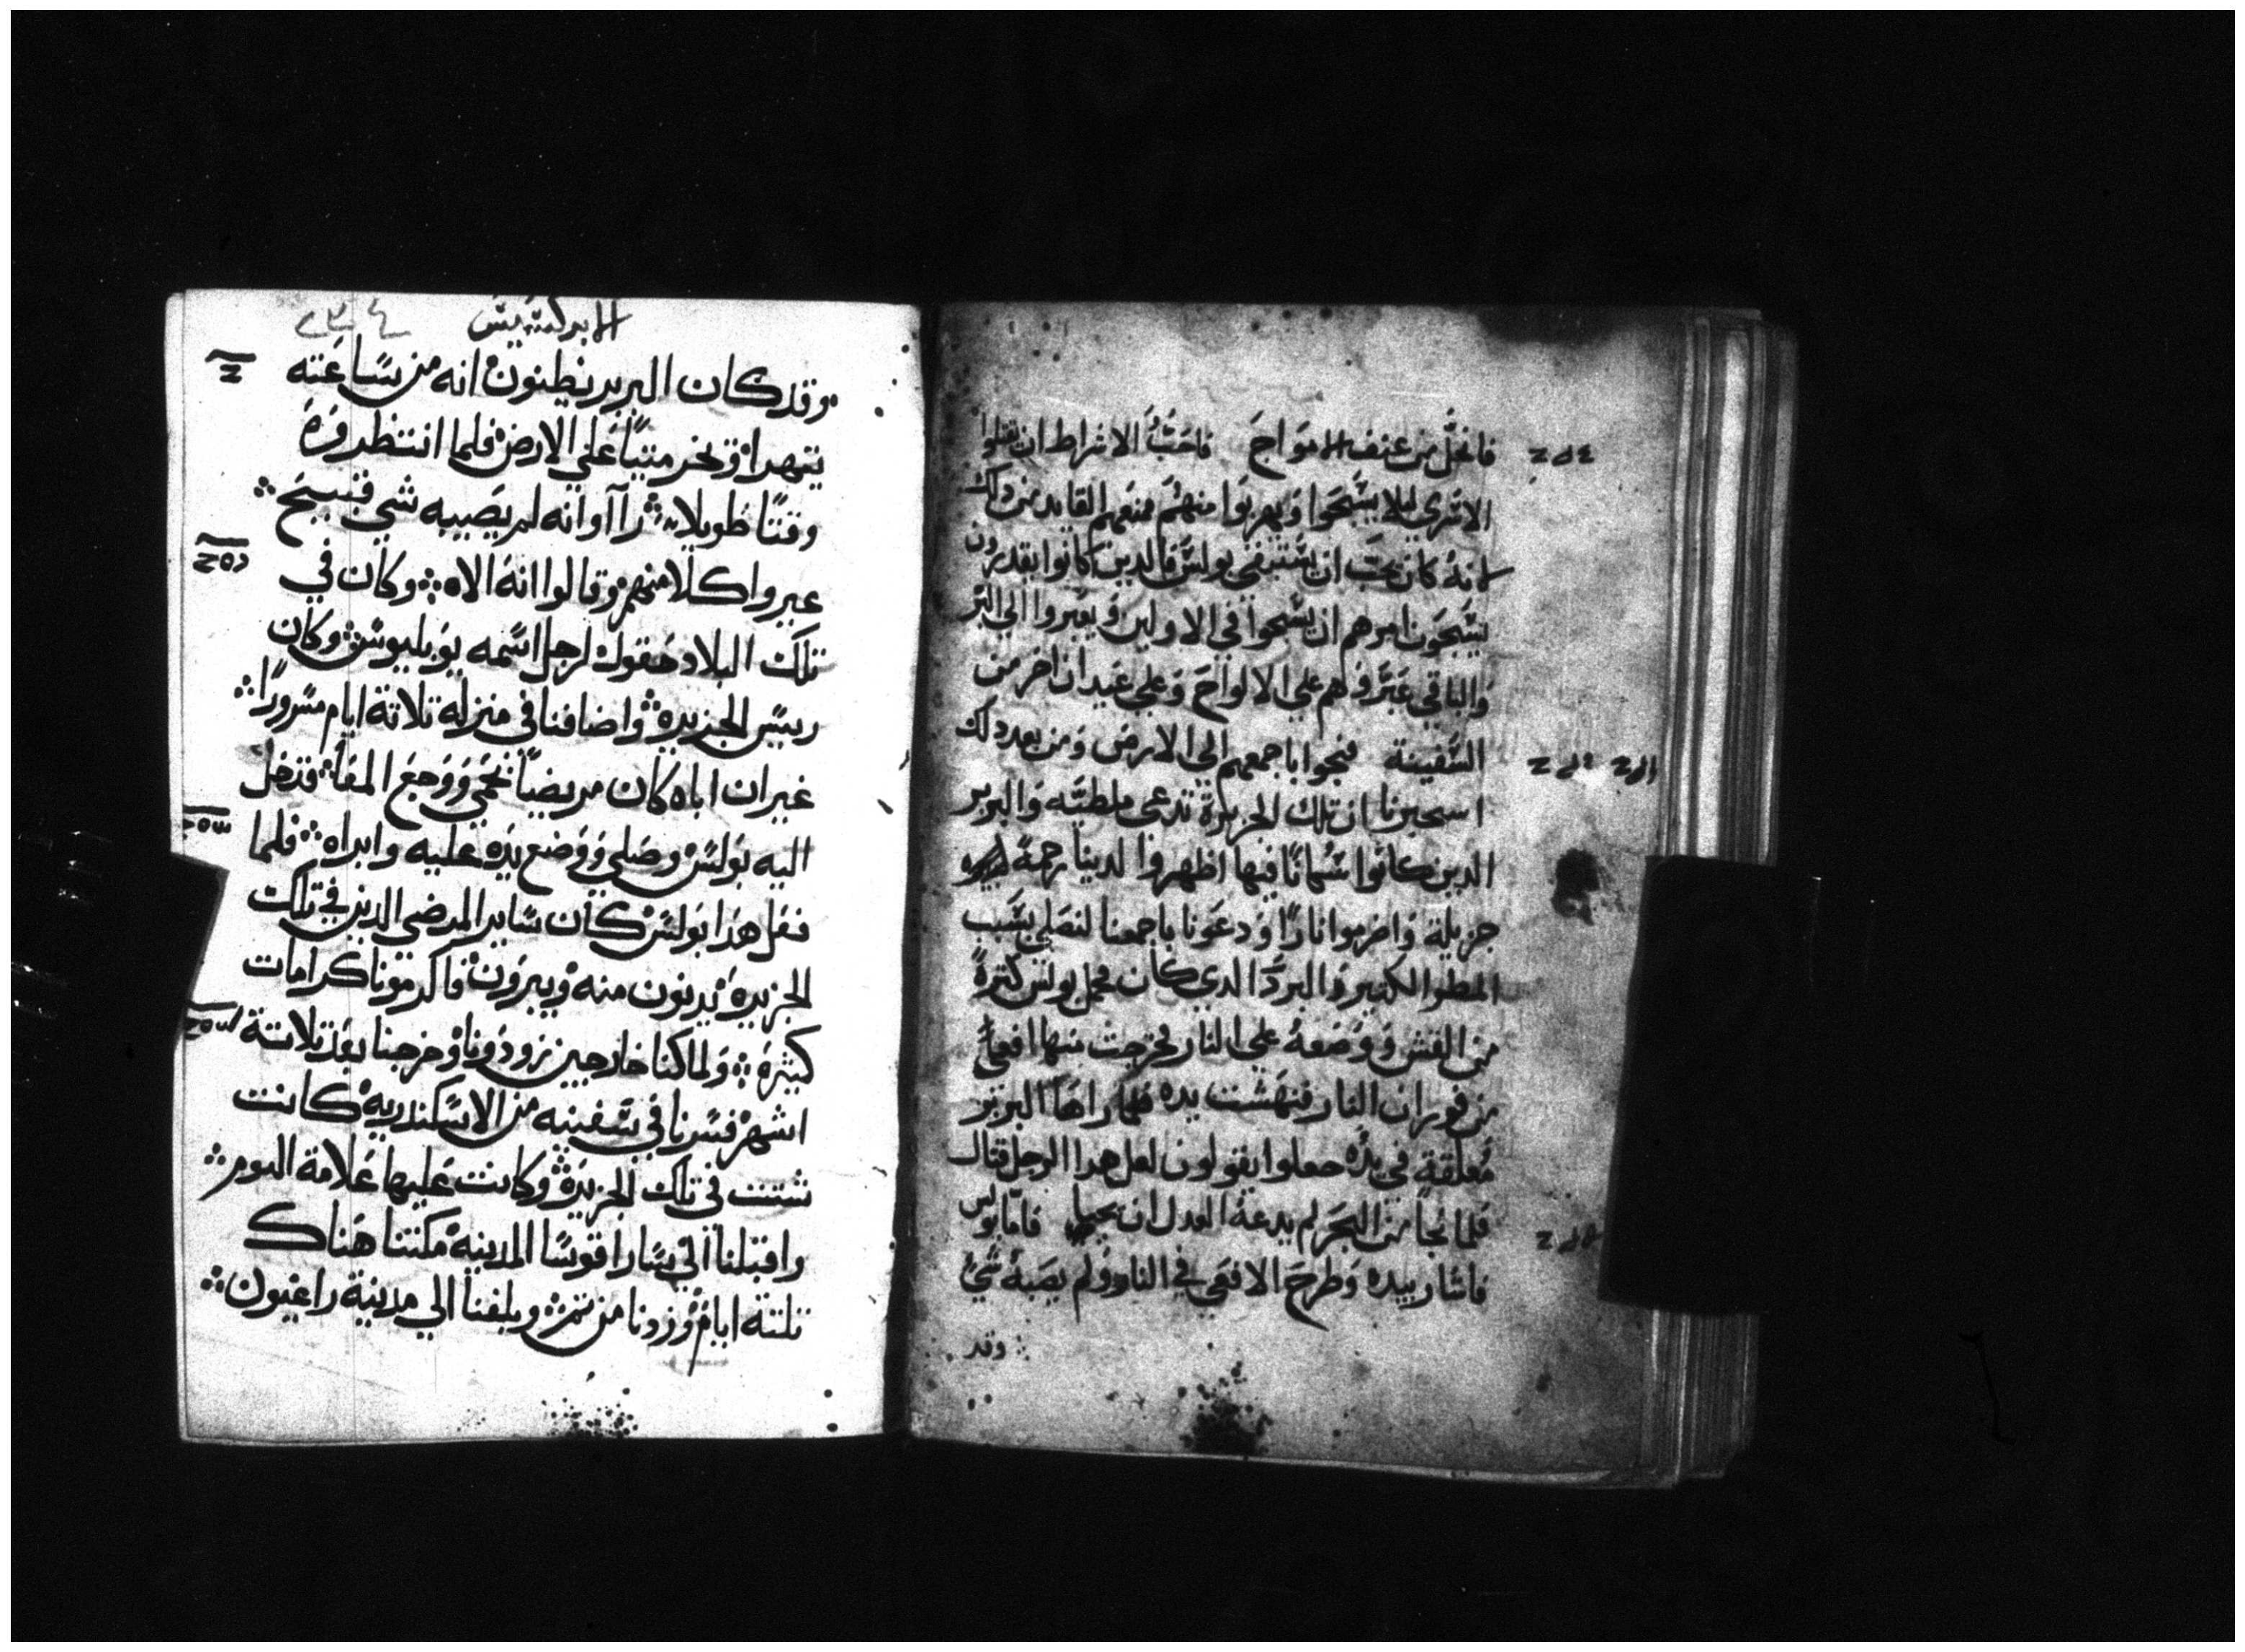 فانحل من عنف الامواج فاحب الاشراط ان يقتلوا
الاسري ليلا يسبحوا ويهربوا منهم فمنعهم القايد من دلك
لانه كان يحب ان يستبقي بولس فالدين كانوا يقدرون
يسبحون امرهم ان يسبحوا في الاولين ويعبروا الي البر
والباقي عبروهم علي الالواح وعلي عيدان اخر من
السفينة فنجوا باجمعهم الي الارض ومن بعد دلك
استخبرنا ان تلك الجزيرة تدعي ملطيه والبربر
الدين كانوا سكانا فيها اظهروا لدينا رحمة
جزيلة واضرموا نارا ودعونا باجمعنا لنصلي بسبب
المطر الكثير والبرد الدي كان فحمل بولس كثرة
من القش ووضعه علي النار فخرجت منها افعي
من فوران النار فنهشت يده فلما راها البربر
معلقة في يده جعلوا يقولون لعل هدا الرجل قتال
فلما نجا من البحر لم يدعه العدل ان يحيا فاما بولس
فاشار بيده وطرح الافعي في النار ولم يصبه شي
وقد
الابركسيس ٢٣٤
وقد كان البربر يظنون انه من ساعته
يتهرا ويخر ميتا علي الارض فلما انتظروه
وقتا طويلا راآوا انه لم يصيبه شي قبيح
غيروا كلامهم وقالوا انه الاه وكان في
تلك البلاد حقول لرجل اسمه بوبليوس وكان
رييس الجزيره واضافنا في منزله تلاتة ايام مسرورا
غير ان اباه كان مريضا بحمي ووجع المعا فدخل
اليه بولس وصلي ووضع يده عليه وابراه فلما
فعل هدا بولس كان ساير المرضي الدين في تلك
الجزيره يدنون منه ويبرون فاكرمونا كرامات
كثيره ولما كنا خارجين زودونا وخرجنا بعد تلاتة
اشهر فسرنا في سفينه من الاسكندريه كانت
شتت في تلك الجزيره وكانت عليها علامة التوم
واقبلنا الي ساراقوسا المدينه مكثنا هناك
تلتة ايام ودرنا من تم وبلغنا الي مدينة راغيون